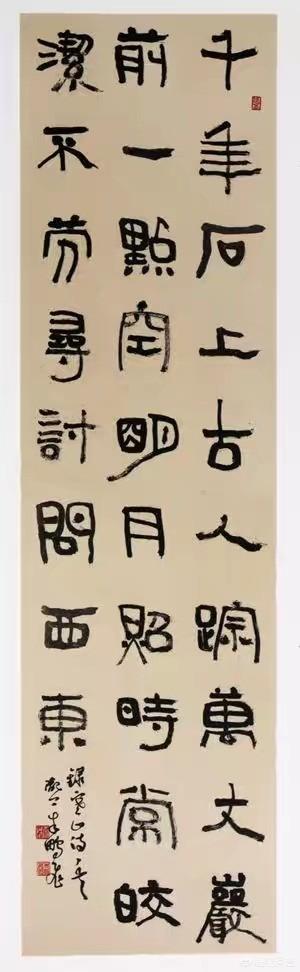 千年石上古人踪萬丈巖
前一點空明月照時常皎
潔不勞尋討問西東
錄寒山诗一首